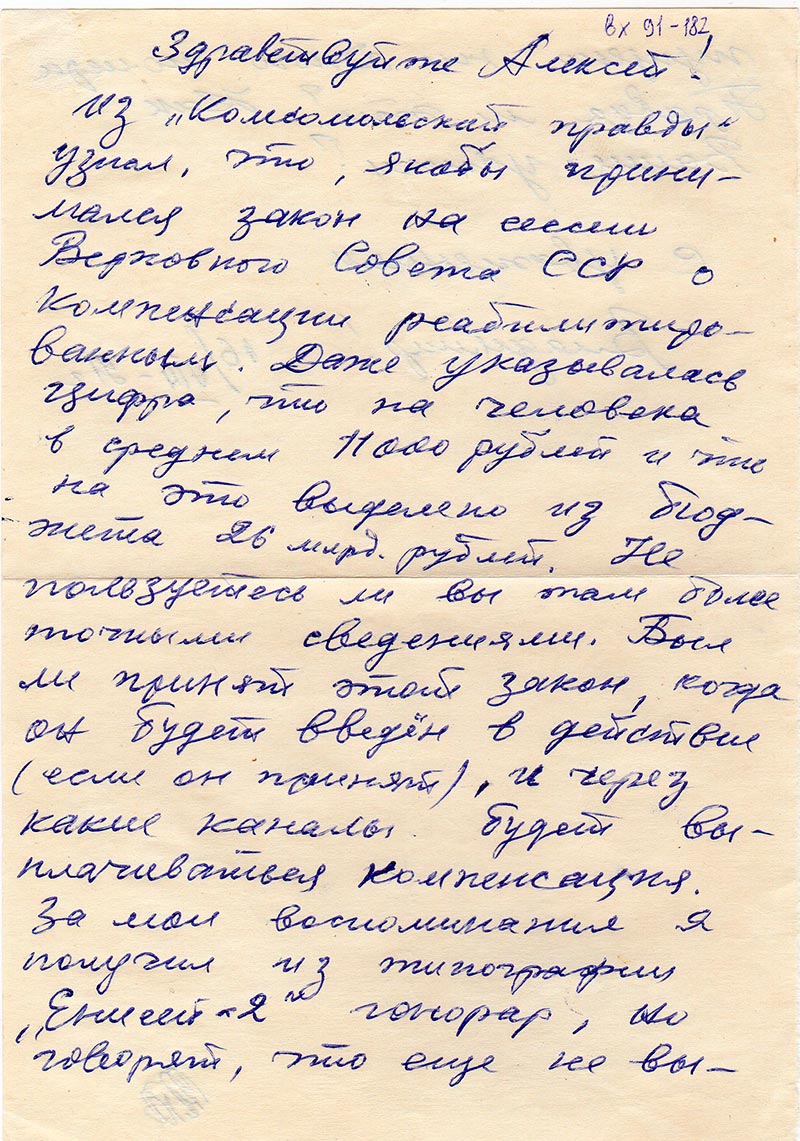 вх 91-182
Здравствуйте Алексей!
Из „Комсомольской правды“
узнал, что, якобы прини-
мался закон на сессии
Верховного Совета ССР о
компенсации реабилитиро-
ванным. Даже указывалась
цифра, что на человека
в среднем 11000 рублей и что
на это выделено из бюд-
жета 26 млрд. рублей. Не
пользуетесь ли вы там более
точными сведениями. Был
ли принят этот закон, когда
он будет введён в действие
(если он принят), и через
какие каналы будет вы-
плачиваться компенсация.
За мои воспоминания я
получил из типографии
„Енисей-2“ гонорар, но
говорят, что еще не вы-